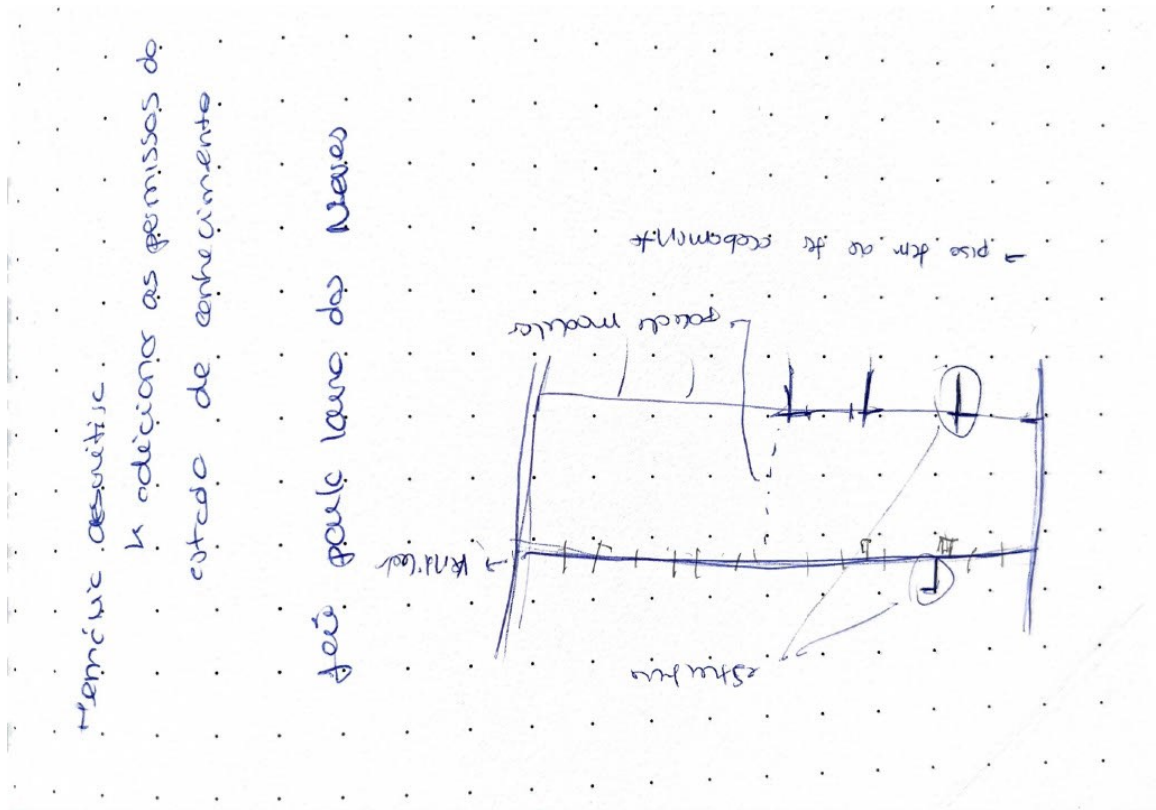 Memória descritiva
↳ adicionar as permissos do
estado de conhecimento
joão paulo lavro das Neves
→ piso tem de ter acabamento
→ parede modular
estrutura